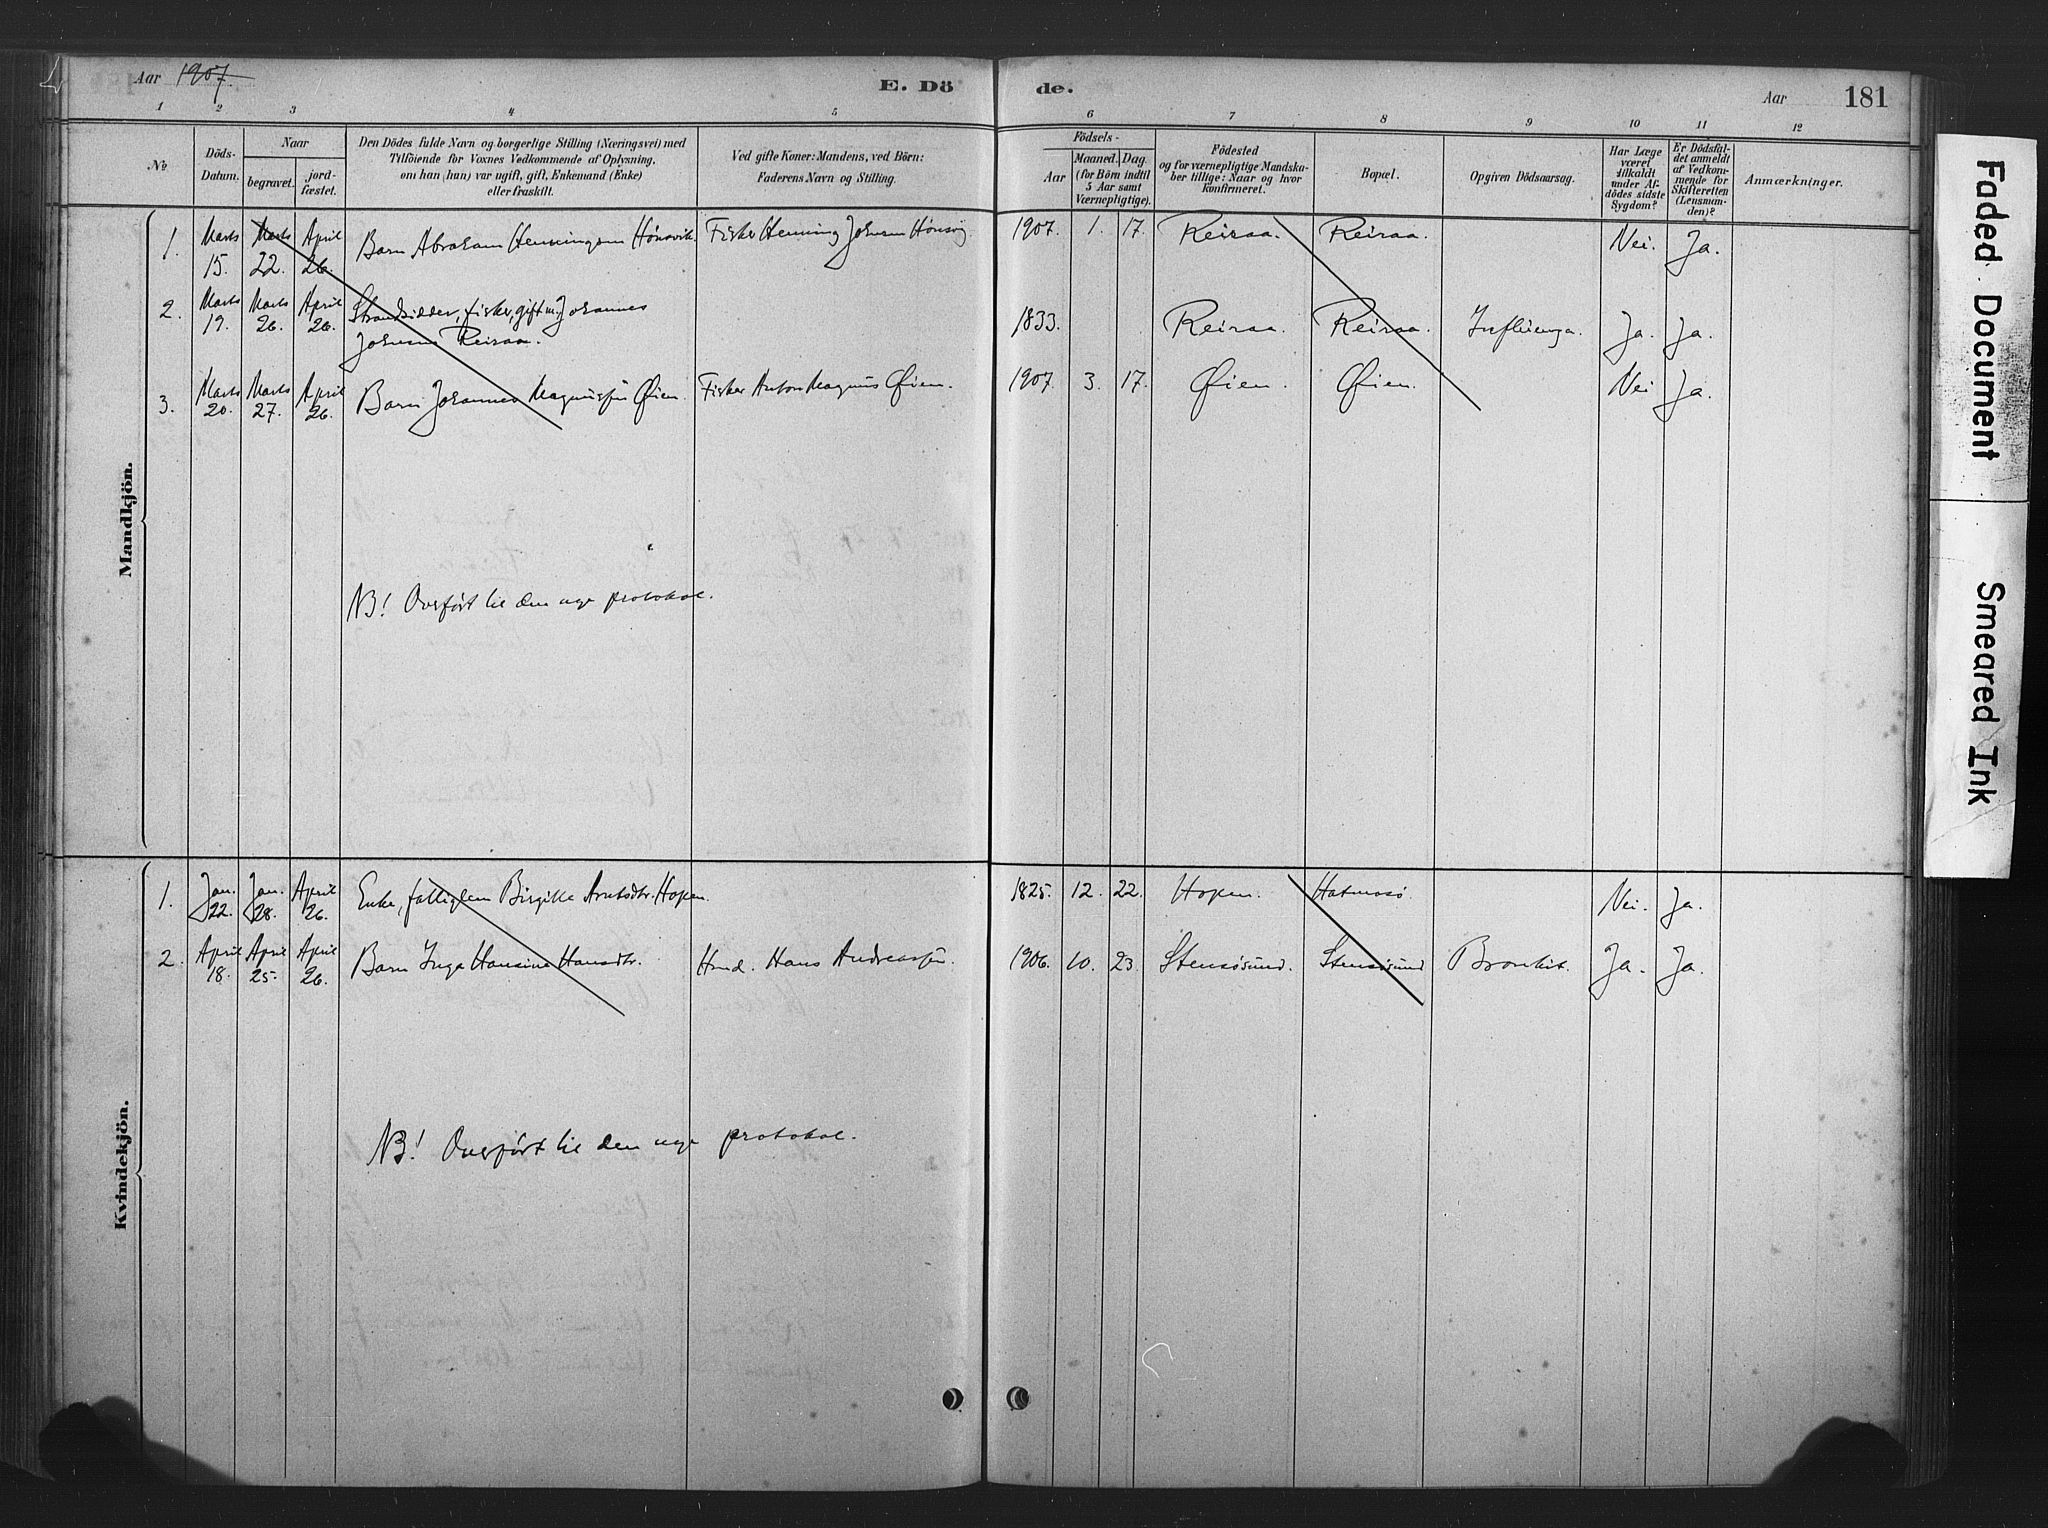 Aar 1907.
E. Dö de.
Aar 181
1 2 3 4 5 6 7 8 9 10 11 12
No
Döds-Datum.
Naar
begravet.
jord-fæstet.
Den Dödes fulde Navn og borgerlige Stilling (Næringsvei) med
Tilföiende for Voxnes Vedkommende af Oplysning,
om han (hun) var ugift, gift, Enkemand (Enke)
eller fraskilt.
Ved gifte Koner: Mandens, ved Börn:
Faderens Navn og Stilling.
Födsels-
Aar
Maaned. Dag.
(for Börn indtil
5 Aar samt
Værnepligtige).
Födested
og for værnepligtige Mandska-
ber tillige: Naar og hvor
konfirmeret.
Bopæl.
Opgiven Dödsaarsag.
Har Læge
været
tilkaldt
under Af-
dödes sidste
Sygdom?
Er Dödsfal-
det anmeldt
af Vedkom-
mende for
Skifteretten
(Lensman-
den)?
Anmærkninger.
Mandkjön.
1. Marts 15. Marts 22. April 26. Barn Abraham Henningsen Hönsvik. Fisker Henning Johnsen Hönsvig 1907. 1. 17. Reiraa. Reiraa. Nei. Ja.
2. Marts 19. Marts 26. April 26. Strandsidder, fisker, gift m. Johannes
Johnsen Reiraa. 1833. Reiraa. Reiraa. Influenza. Ja. Ja.
3. Marts 20. Marts 27. April 26. Barn Johannes Magnussen Øien. Fisker Anton Magnus Øien. 1907. 3. 17. Øien. Øien. Nei Ja.
NB! Overført til den nye protokol.
Kvindekjön.
1. Jan. 22. Jan. 28. April 26. Enke, fattiglem Birgitte Arntsdtr. Hopen. 1825. 12. 22. Hopen. Hatmosö. Nei. Ja.
2. April 18. April 25. April 26. Barn Inga Hansine Hansdtr. Hmd. Hans Andreassen. 1906. 10. 23. Stensösund. Stensösund Bronkit. Ja. Ja.
NB! Overført til den nye protokol.
Faded Document
Smeared Ink